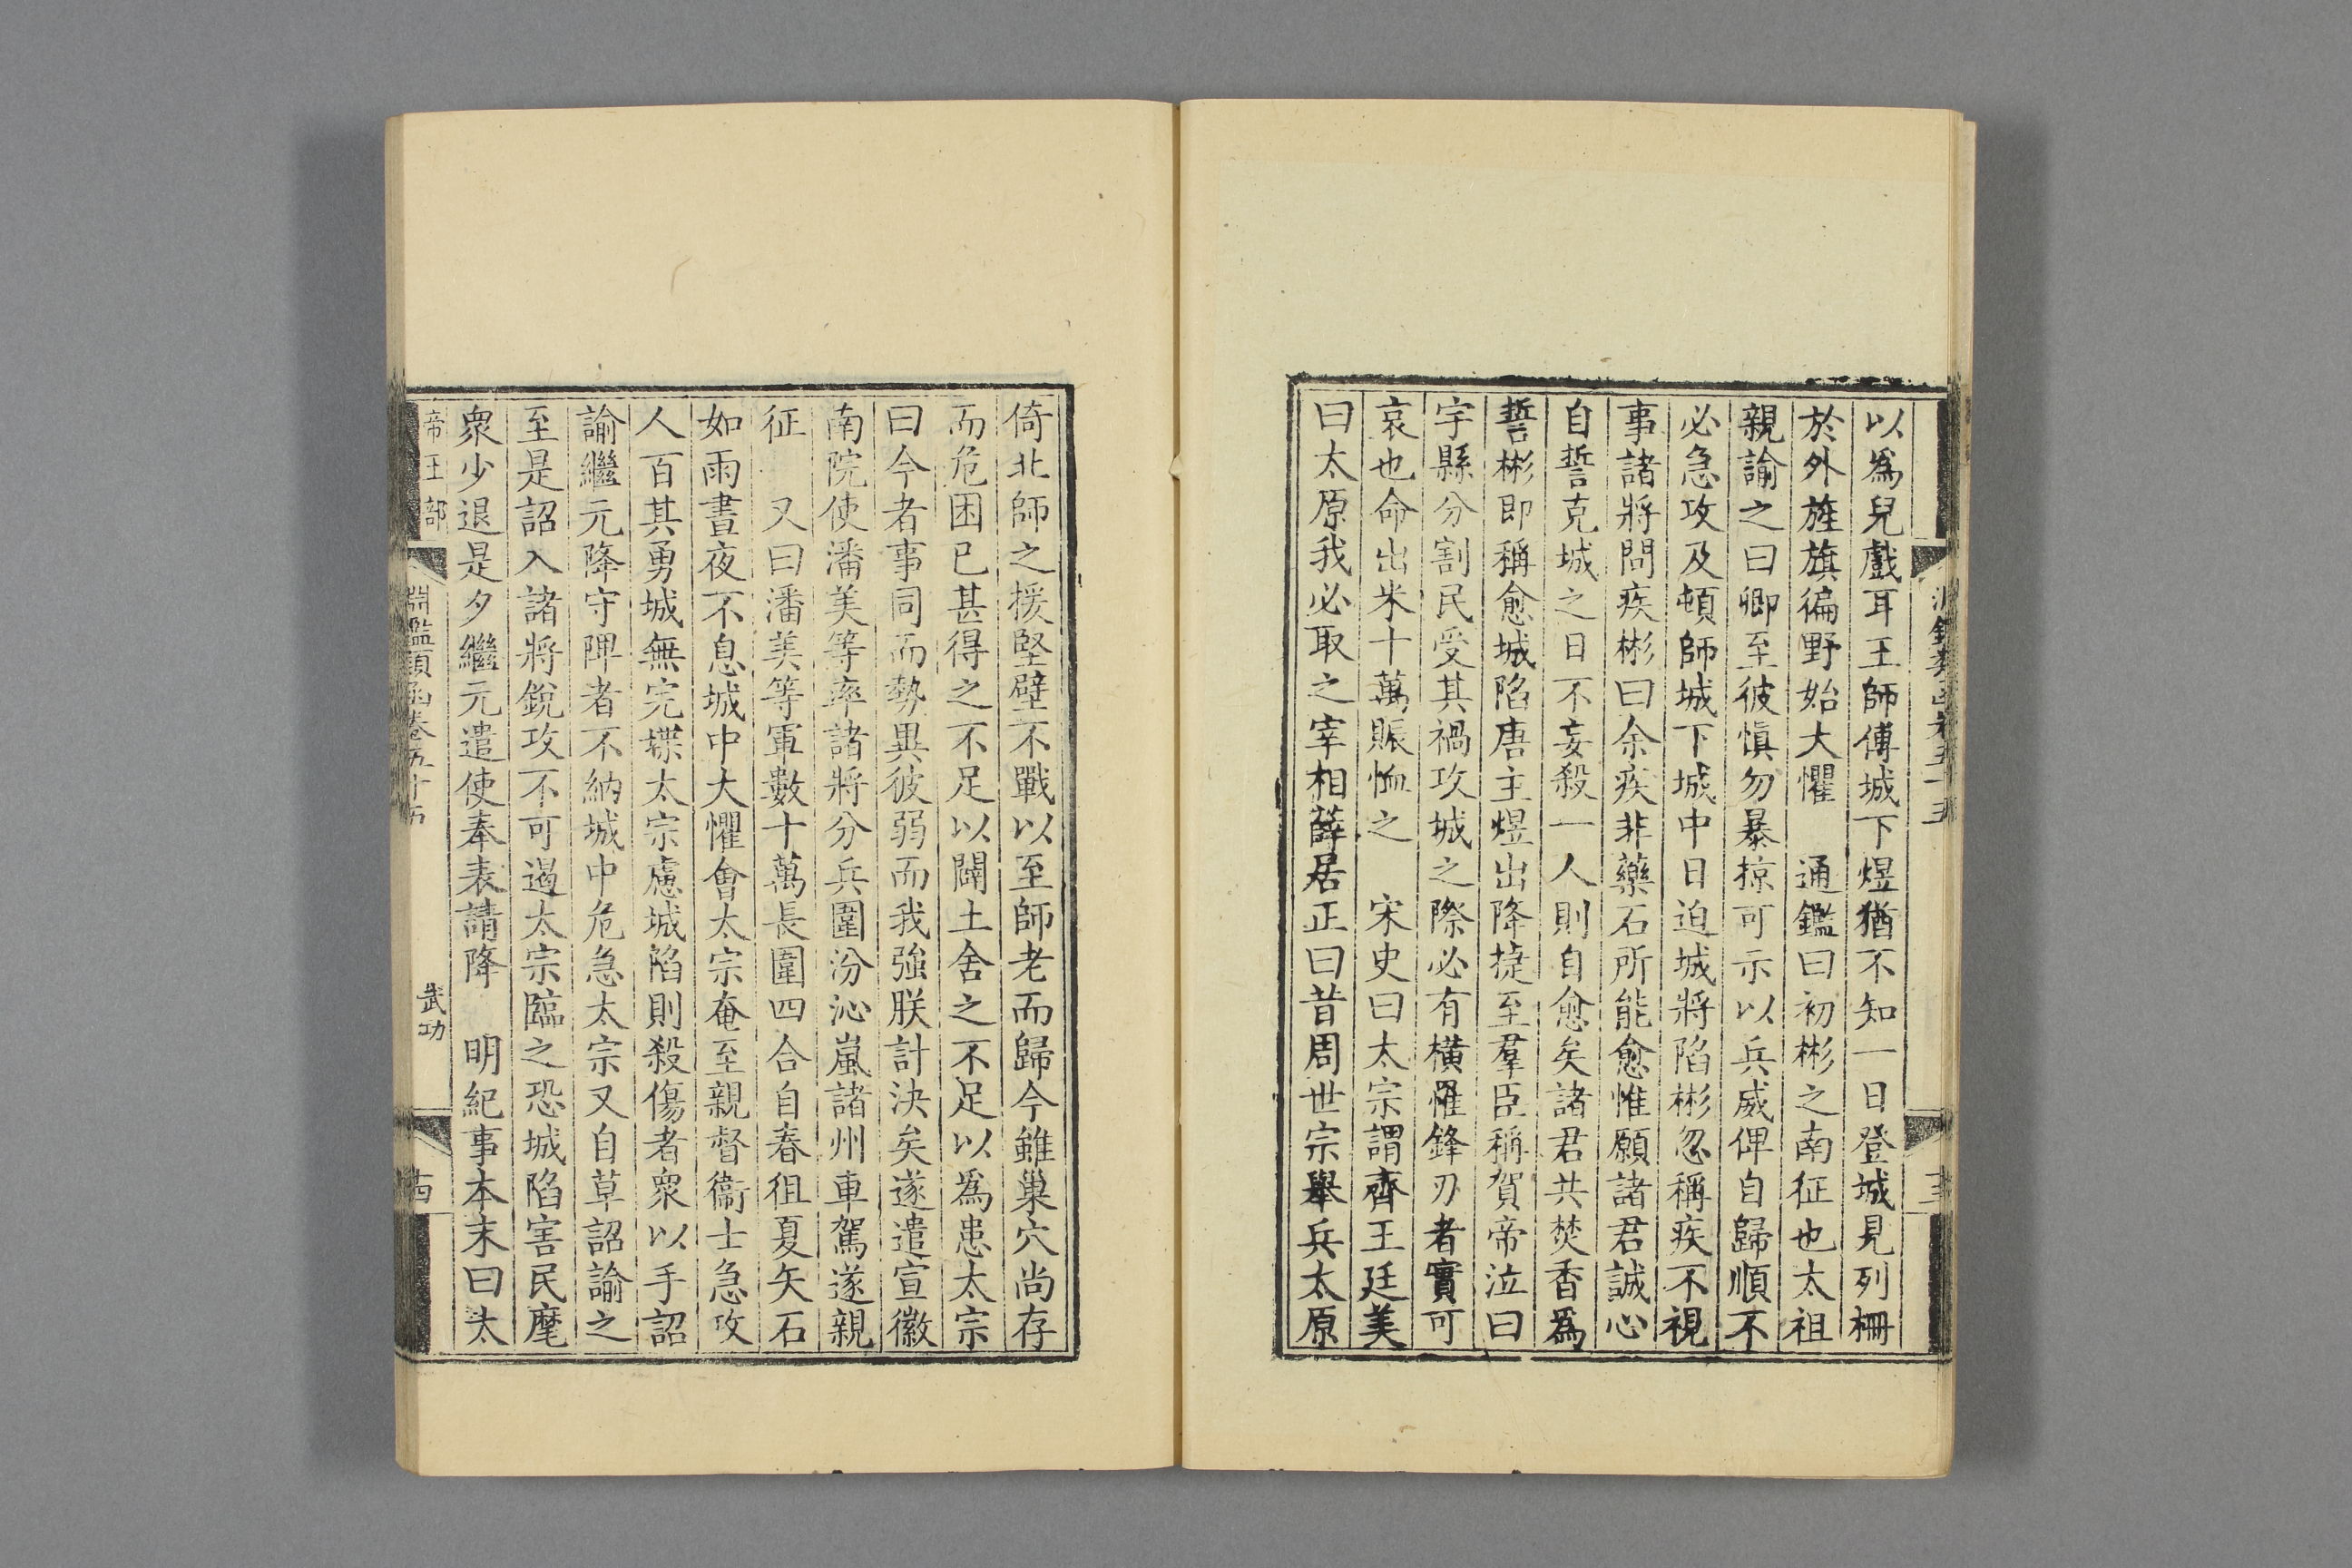 以爲兒戲耳王師傅城下煜猶不知一日登城見列柵
於外旌旗徧野始大懼　通鑑曰初彬之南征也太祖
親諭之曰卿至彼愼勿暴掠可示以兵威俾自歸順不
必急攻及頓師城下城中日迫城將陷彬忽稱疾不視
事諸將問疾彬曰余疾非藥石所能愈惟願諸君誠心
自誓克城之日不妄殺一人則自愈矣諸君共焚香爲
誓彬即稱愈城陷唐主煜出降捷至羣臣稱賀帝泣曰
宇縣分割民受其禍攻城之際必有橫罹鋒刃者實可
哀也命出米十萬賑恤之　宋史曰太宗謂齊王廷美
曰太原我必取之宰相薛居正曰昔周世宗舉兵太原
倚北師之援堅壁不戰以至師老而歸今雖巢穴尚存
而危困已甚得之不足以闢土舍之不足以爲患太宗
曰今者事同而勢異彼弱而我強朕計決矣遂遣宣徽
南院使潘美等率諸將分兵圍汾沁嵐諸州車駕遂親
征　又曰潘美等軍數十萬長圍四合自春徂夏矢石
如雨晝夜不息城中大懼會太宗奄至親督衞士急攻
人百其勇城無完堞太宗慮城陷則殺傷者衆以手詔
諭繼元降守陴者不納城中危急太宗又自草詔諭之
至是詔入諸將銳攻不可遏太宗臨之恐城陷害民麾
衆少退是夕繼元遣使奉表請降　明紀事本末曰太
帝王部
淵鑑類函卷五十五
武功
十四